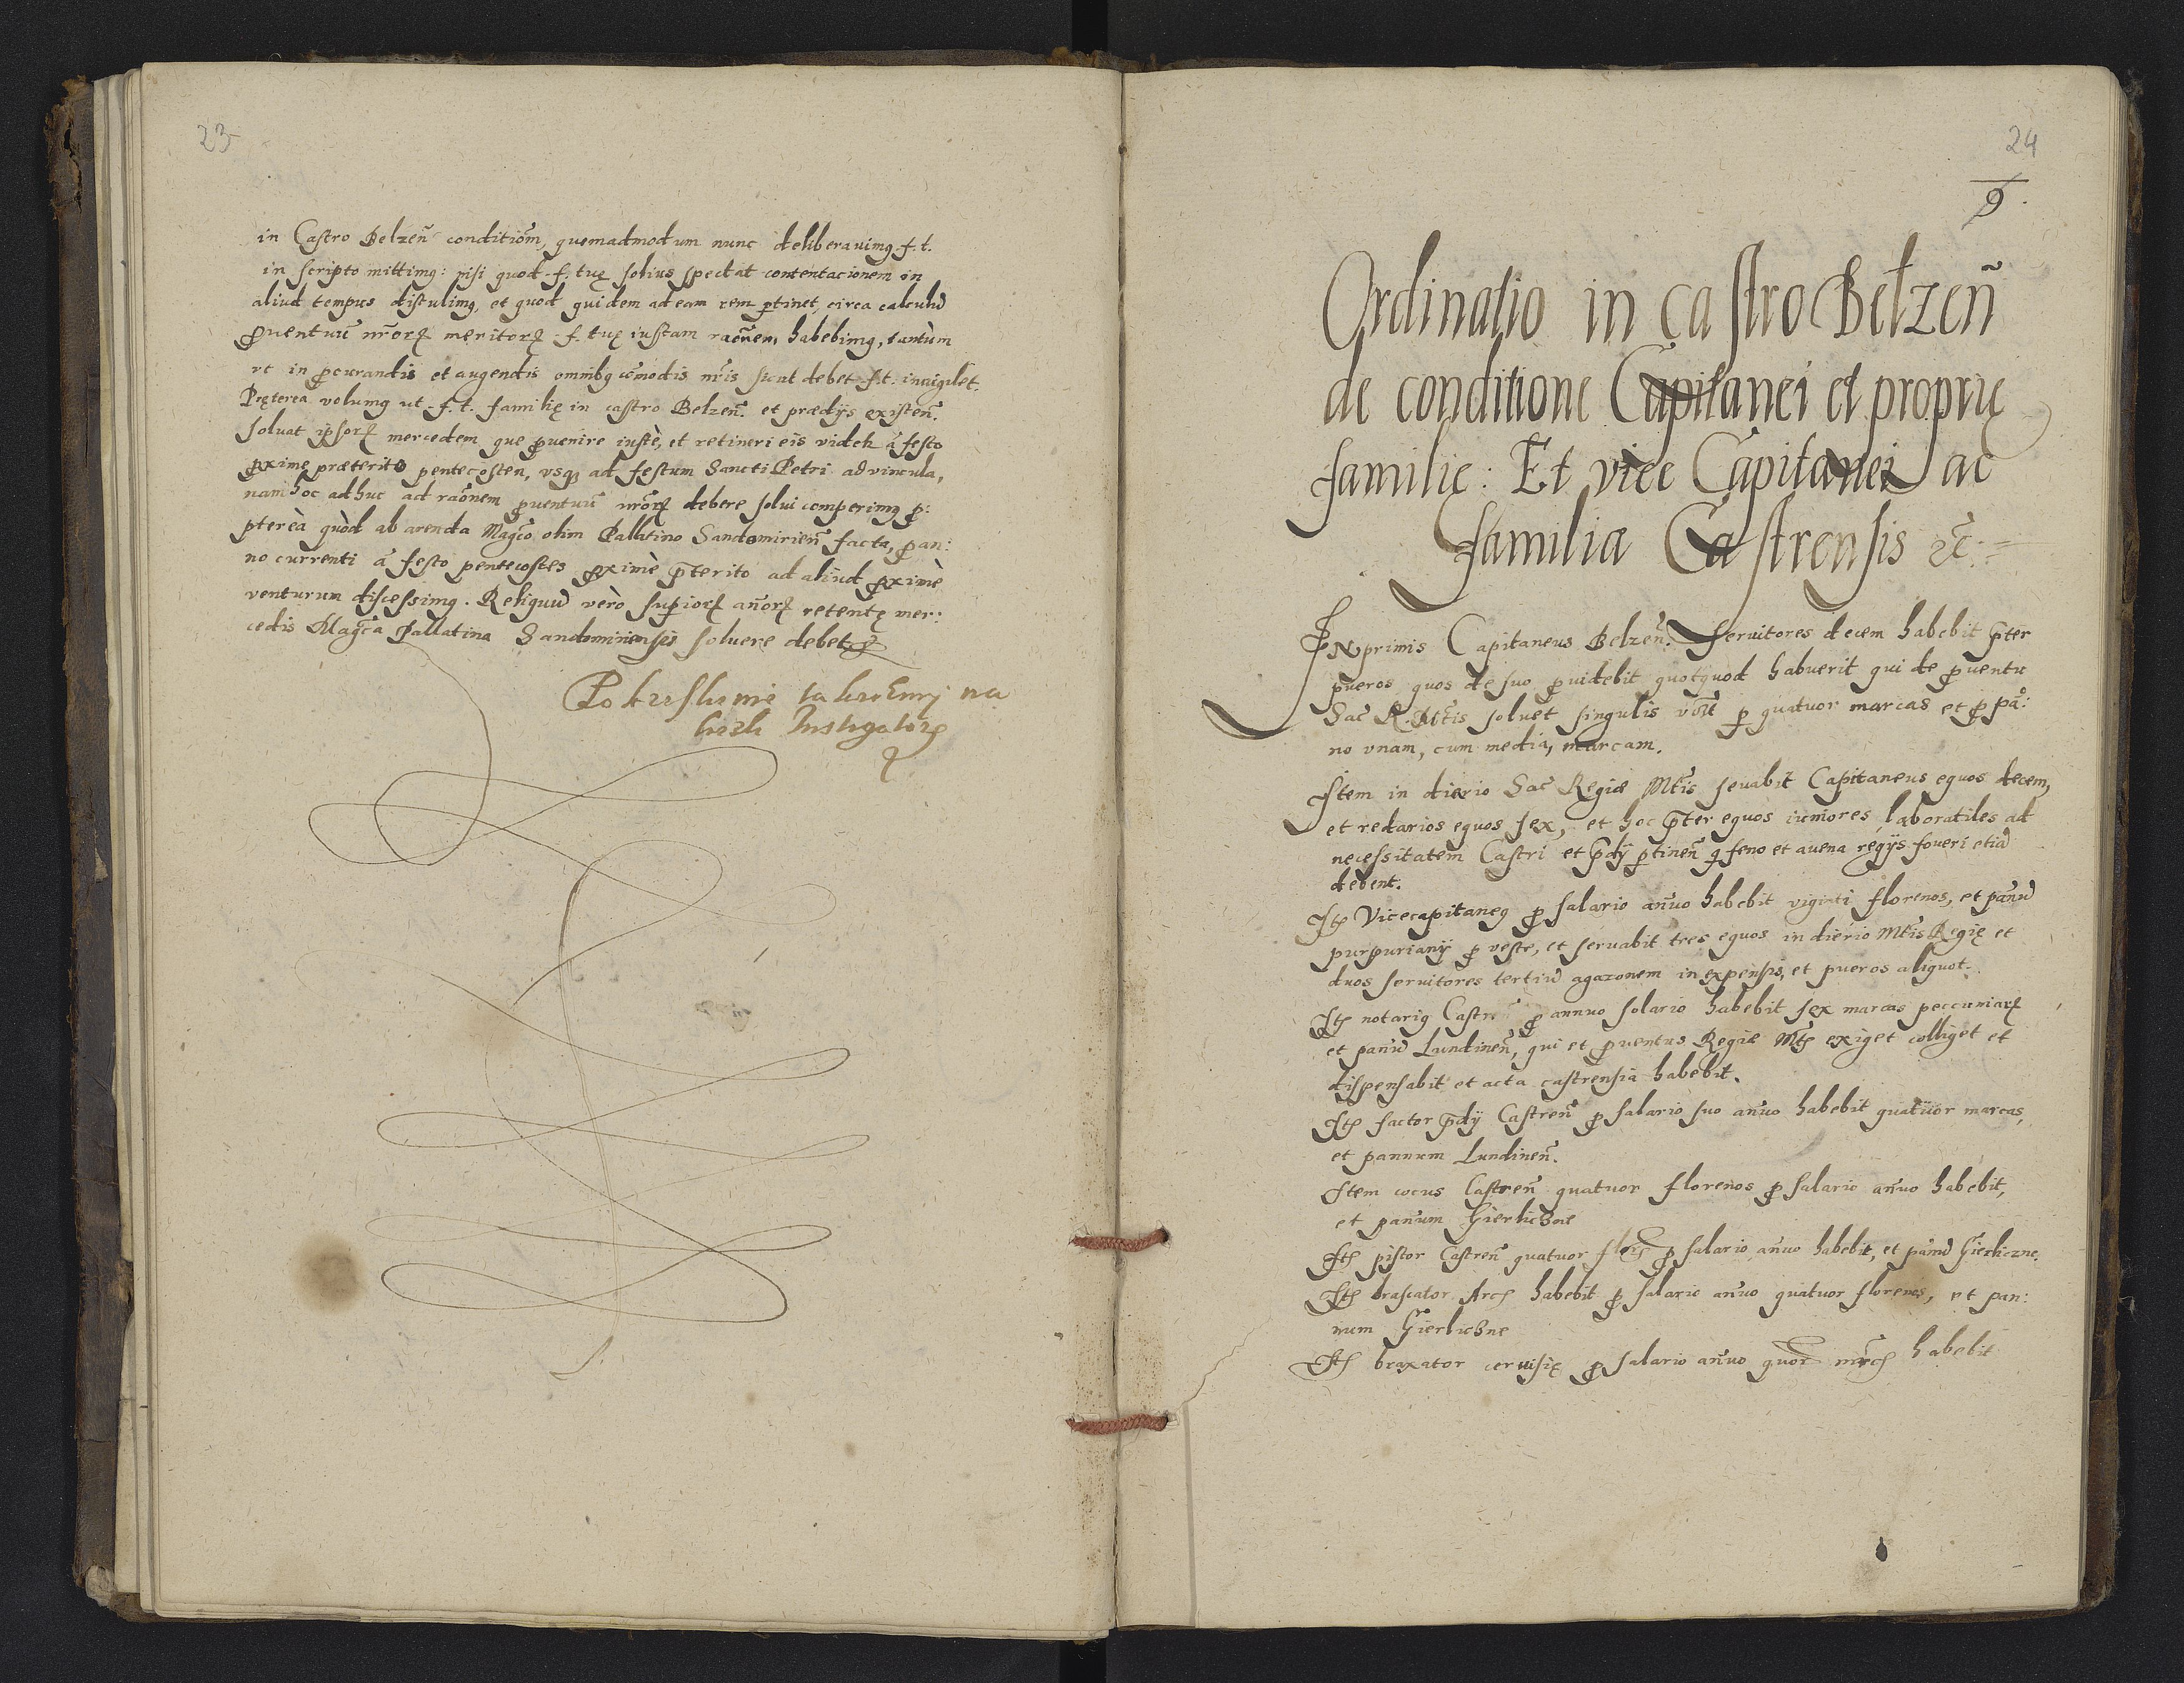 23
in Castro Belzen̄ conditiōm, quemadmodum nunc deliberauimꝰ. f. t.
in scripto mittimꝰ: nisi quod f. tuę solius spectat contentacionem in
aliud tempus distulimꝰ, et quod quidem ad eam rem ꝑtinet, circa calculū
ꝓuentuū nr̄orꝝ meritorꝝ f. tuę iustam racōnem habebimꝰ, tantùm
vt in ꝓcurandis et augendis omnibꝰ cōmodis nr̄is sicut debet f. t. inuigilet.
Pręterea volumꝰ ut f. t. familię in castro Belzen̄. et prædijs existen̄.
soluat ipsorꝝ mercedem que ꝓuenire iustè, et retineri eis videt̄ à festo
ꝓxime præterito pentecosten, vsqꝫ ad festum Sancti Petri ad vincula,
nam hoc adhuc ad raōnem ꝓuentuū nr̄orꝝ debere solui comperimꝰ ꝓ:
pterèa quòd ab arenda Magc̄o olim Pallatino Sandomirien̄ facta, ꝓ an:
no currenti à festo pentecostes ꝓximè p̄terito ad aliud ꝓximè
venturum discessimꝰ. Reliquū vèro supiorꝝ an̄orꝝ retentę mer:
cedis Magc̄a Pallatina Sandomiriensis soluere debet
na
24
9.
Ordinatio in castro Belzen̄
de conditione Capitanei et proprię
familię: Et vice Capitanei ac
familia Castrensis etc̄.
INprimis Capitaneus Belzen̄. seruitores decem habebit p̄ter
pueros quos de suo ꝓuidebit quotquod habuerit qui de ꝓuentu
Sac̄ R. Mt̄is soluet singulis ꝑ quatuor marcas et ꝓ pā:
no vnam, cum media, marcam.
Item in dierio Sac̄ Regiæ Mt̄is seuabit Capitaneus equos decem,
et redarios equos sex, et hoc p̄ter equos iumores laboratiles ad
necessitatem Castri et p̄dij ꝑtinen̄ q feno et auena regijs foueri etiā
debent.
Itꝫ Vicecapitaneꝰ ꝓ salario an̄uo habebit viginti florenos, et pan̄ū
purpurianÿ ꝓ veste, et seruabit tres equos in dierio Mt̄is Regię et
duos seruitores tertiū agazonem in expensis, et pueros aliquot.
Itꝫ notariꝰ Castren̄ ꝓ annuo solario habebit sex marcas peccuniarꝝ
et pan̄ū Lundinen̄, qui et ꝓuentus Regiæ Mt̄ꝫ exiget colliget et
dispensabit et acta castrensia habebit.
Itꝫ factor p̄dij Castren̄ ꝓ salario suo an̄uo habebit quatuor marcas,
et pannum Lundinen̄.
Item cocus Castren̄ quatuor florenos ꝓ salario an̄uo habebit,
et pan̄um Gierliczne
Itꝫ pistor Castren̄ quatuor flor̄ ꝓ salario an̄uo habebit, et pan̄ū Gierliczne.
Itꝫ brascator Arcꝫ habebit ꝓ salario an̄uo quatuor florenos, et pan:
num Gierliczne
Itꝫ braxator ceruisię ꝓ salario an̄uo quor̄ mr̄cꝫ habebit